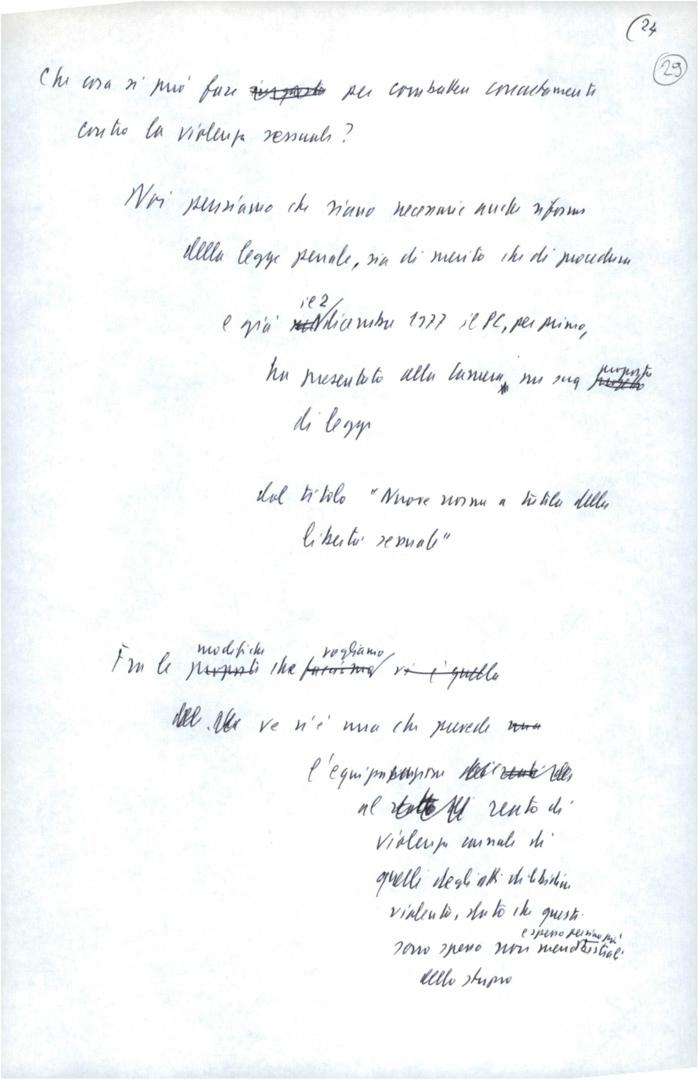 24
29
Che cosa si può fare per combattere concretamente
contro la violenza sessuale?
Noi pensiamo che siano necessarie anche riforme
della legge penale, sia di merito che di procedura
il 2
e già dicembre 1977 il PC, per primo,
proposta
ha presentato alla Camera, una sua
di legge
dal titolo "Nuove norme a tutela della
libertà sessuale"
modifiche vogliamo
Fra le proposte che facciamo vi è quella
ve n'è una che prevede una
l'equiparazione
al reato di
violenza carnale di
quelli degli atti di libidine
violenti, dato che questi
e spesso persino più
sono spesso non meno bestiali
dello stupro